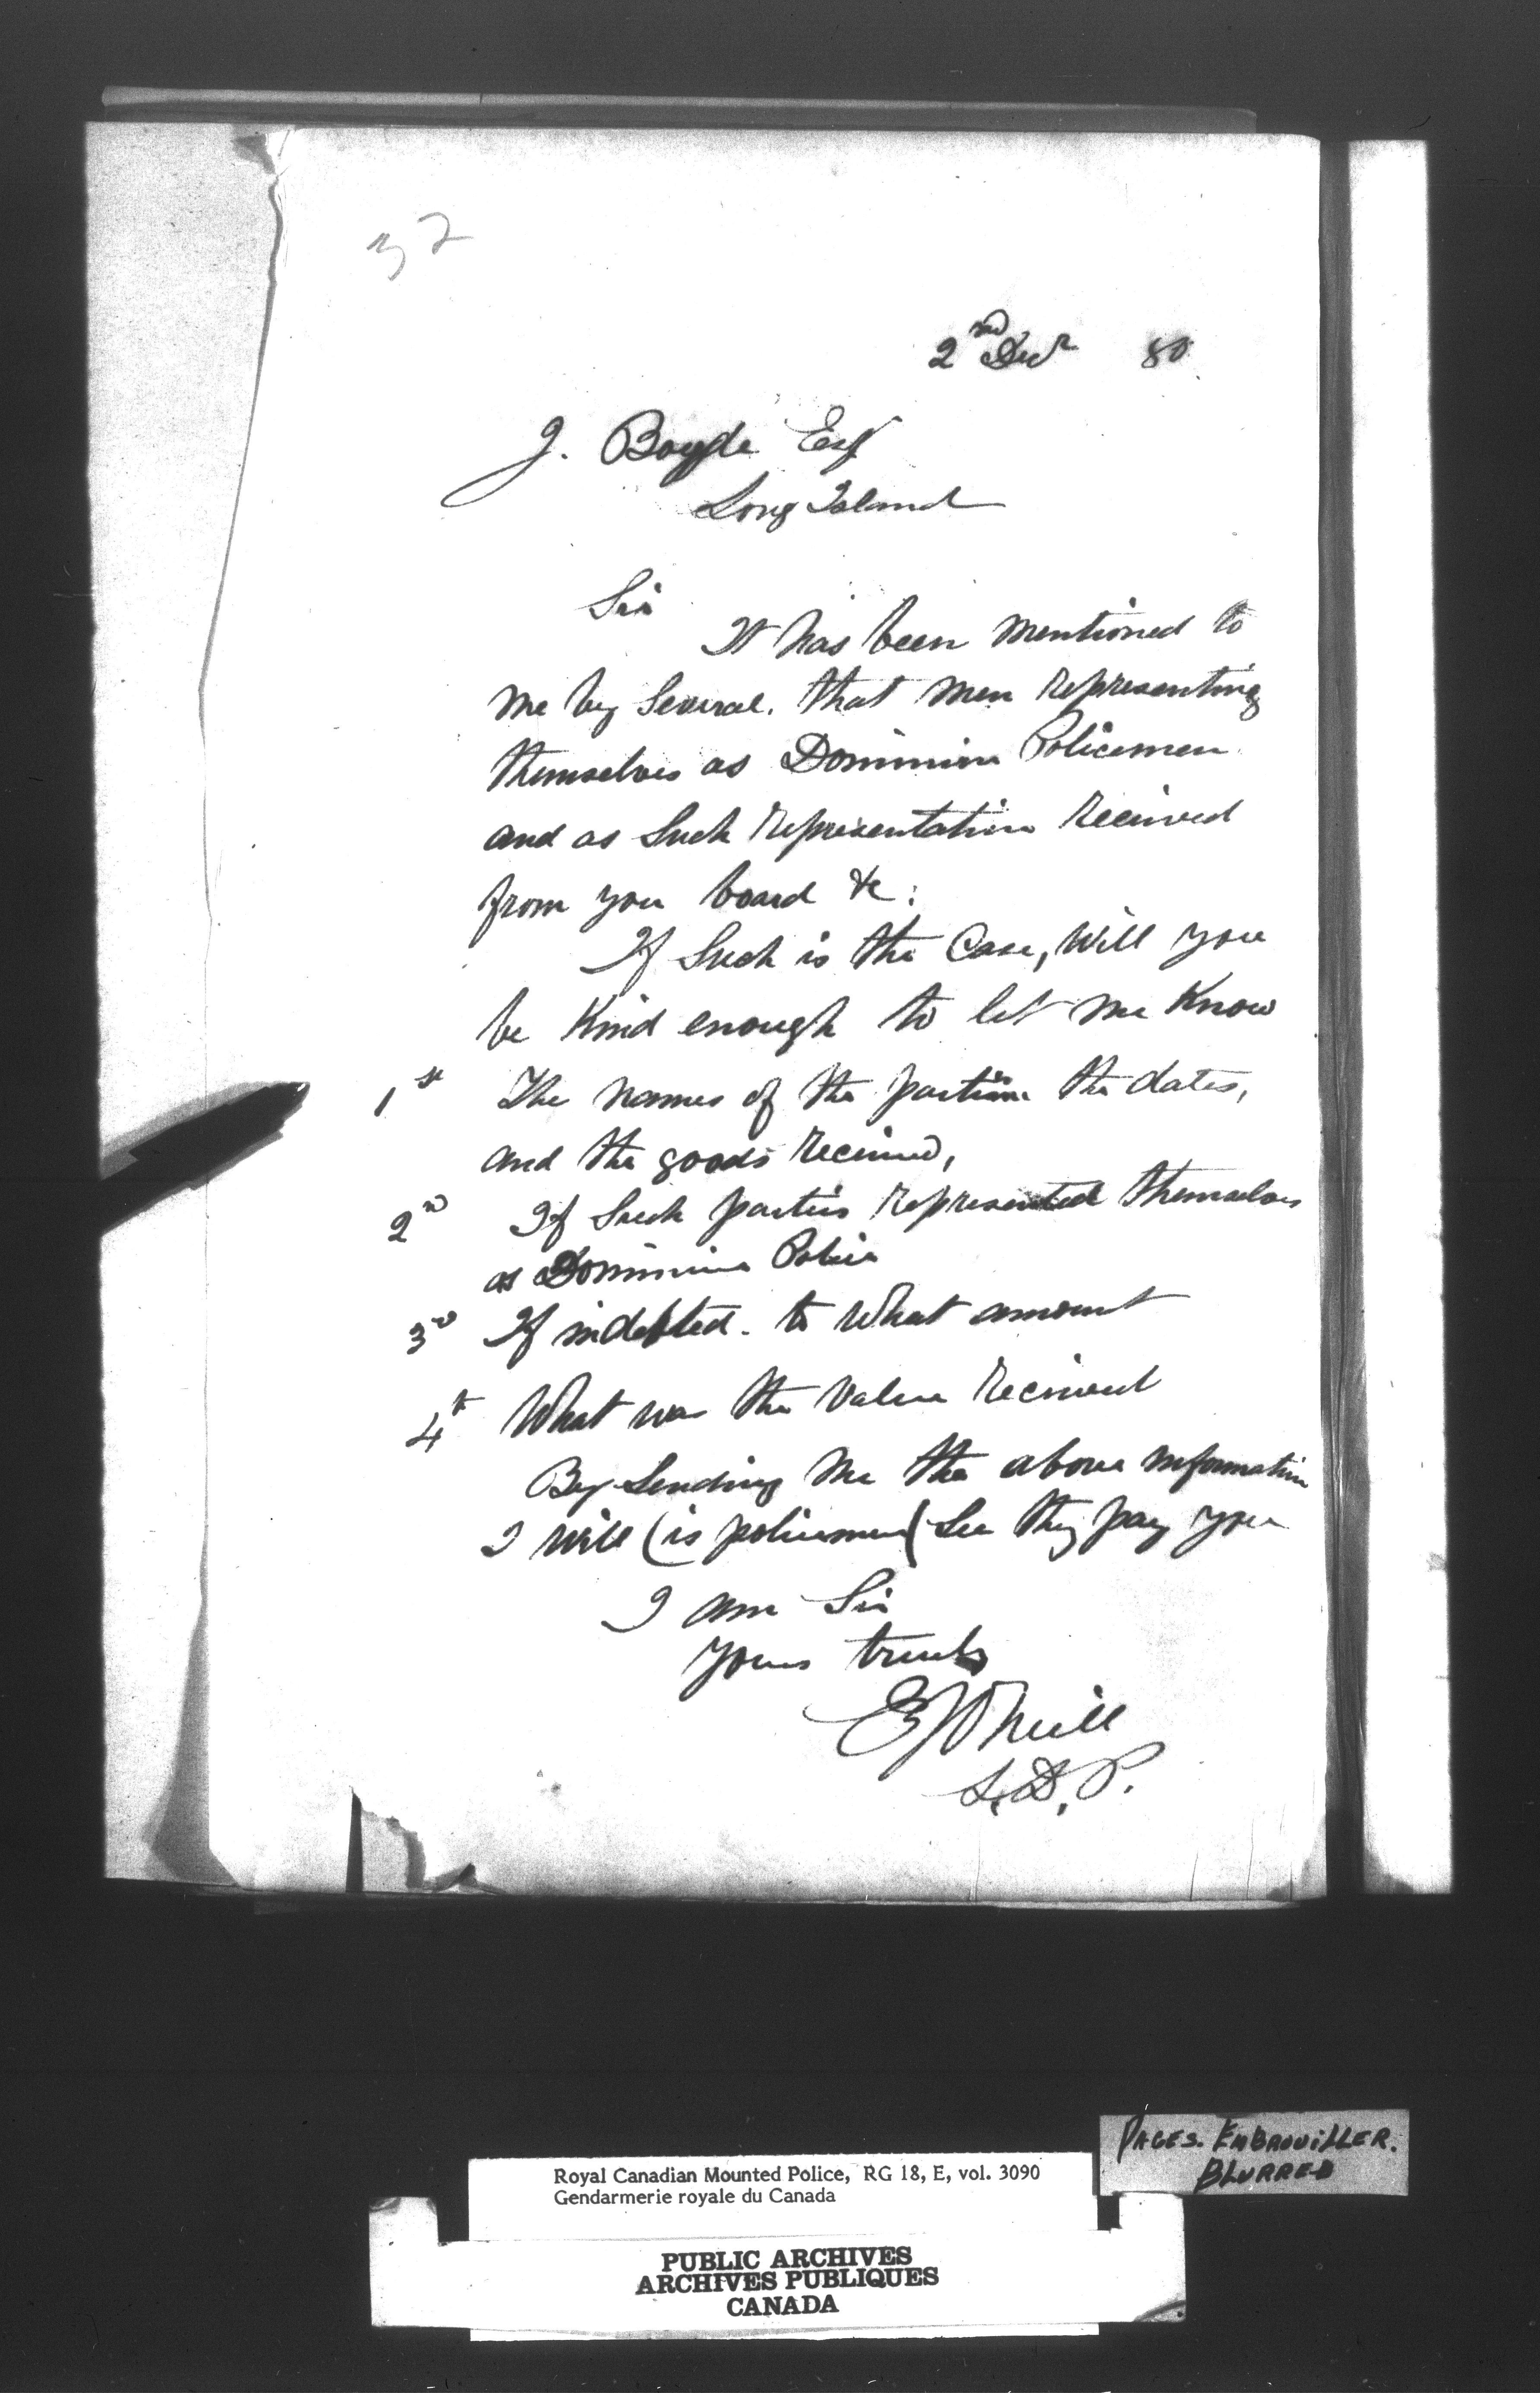 37
2nd Decr 80
J. Boyde Esq
Long Island
Sir
It has been mentioned to
me by Several. that men representing
themselves as Dominion Policemen
and as Such representation received
from you board &c:
If Such is the Case, Will you
be Kind enough to let me Know
1st The names of the parties the dates,
and the goods received,
2nd If Such parties represented themselves
as Dominion Police
3rd If indebted. to What amount
4th What was the Value received
By Sending me the above information
I will (is policemen( See they pay you
I am Sir
yours truly
E J O'Neill
S. D. P.
PAGES. EMBROUILLER.
BLURRED
Royal Canadian Mounted Police, RG 18, E, vol. 3090
Gendarmerie royale du Canada
PUBLIC ARCHIVES
ARCHIVES PUBLIQUES
CANADA